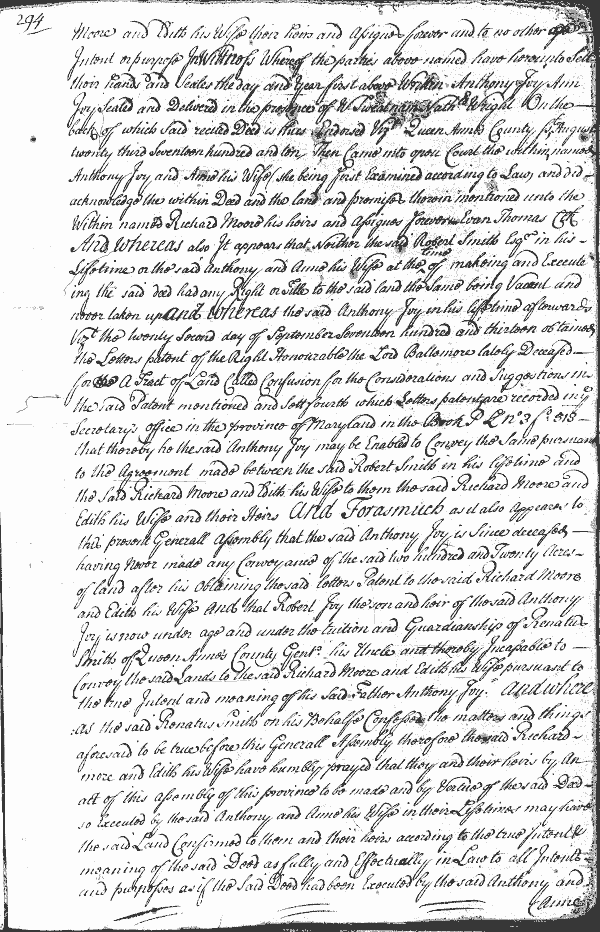 294
Moore and Edith his Wife their heirs and Assignes forever and to no other
Intent or purpose In Witness Whereof the parties above named have hereunto Sett
their hands and Seales the day and Year first above Written Anthony Joy Ann
Joy Sealed and Delivered in the presence of Wright On the
back of which said recited Deed is thus Endorsed Vizt. Queen Anns County ss August
twenty third Seventeen hundred and ten Then Came into open Court the within named
Anthony Joy and Anne his Wife she being first Examined according to Law, and did
acknowledge the within Deed and the land and premises therein mentioned unto the
Within named Richard Moore his heirs and Assignes forever Evan Thomas Clk
And whereas also It appears that Neither the said Robert Smith Esqr. in his
Lifetime or the said Anthony and Anne his Wife at the time of makeing and Execute
ing the said deed had any Right or Title to the said land the Same being Vacant and
never taken up And whereas the said Anthony Joy in his lifetime afterwards
Vizt. the twenty Second day of September Seventeen hundred and thirteen obtained
the Letters patent of the Right Honourable the Lord Baltemore lately Deceased
for A Tract of Land Called Confusion for the Considerations and Suggestions in
the said Patent mentioned and Sett fourth which Letters patent are recorded in ye
Secretary's office in the province of Maryland in the Book P L no. 3 fo. 518
that thereby he the said Anthony Joy may be Enabled to Convey the Same pursuant
to the Agreement made between the said Robert Smith in his lifetime and
the Said Richard Moore and Edith his Wife to them the said Richard Moore and
Edith his Wife and their Heirs And Forasmuch as it also Appeares to
this present Generall Assembly that the said Anthony Joy is Since deceased
having Never made any Conveyance of the said two hundred and Twenty Acres
of land after his Obtaining the said letters Patent to the said Richard Moore
and Edith his Wife And that Robert Joy the son and heir of the said Anthony
Joy is now under age and under the tuition and Guardianship of Renatus
Smith of Queen Annes County Gent. his Uncle and thereby Incapable to
Convey the said Lands to the said Richard Moore and Edith his Wife pursuant to
the true Intent and meaning of his Said Father Anthony Joy. And where
as the said Renatus Smith on his Behalfe Confessed the matters and things
aforesaid to be true before this Generall Assembly therefore the said Richard
more and Edith his Wife have humbly prayed that they and their heirs by An
act of this Assembly of this province to be made and by Vertue of the said Deed
so Executed by the said Anthony and Anne his Wife in their Lifetimes may have
the said Land Confirmed to them and their heirs according to the true Intent &
meaning of the said Deed as fully and Effectually in Law to all Intents
and purposes as if the Said Deed had been Executed by the said Anthony and
Anne